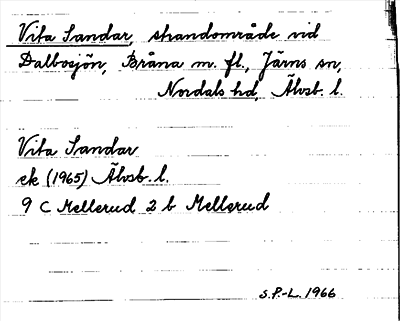 Vita Sandar, strandområde vid
Dalbosjön, Bråna m. fl., Järns sn,
Nordals hd, Älvsb. l.
Vita Sandar
ek (1965) Älvsb. l.
9 C Mellerud 2 b Mellerud
S.P.-L. 1966